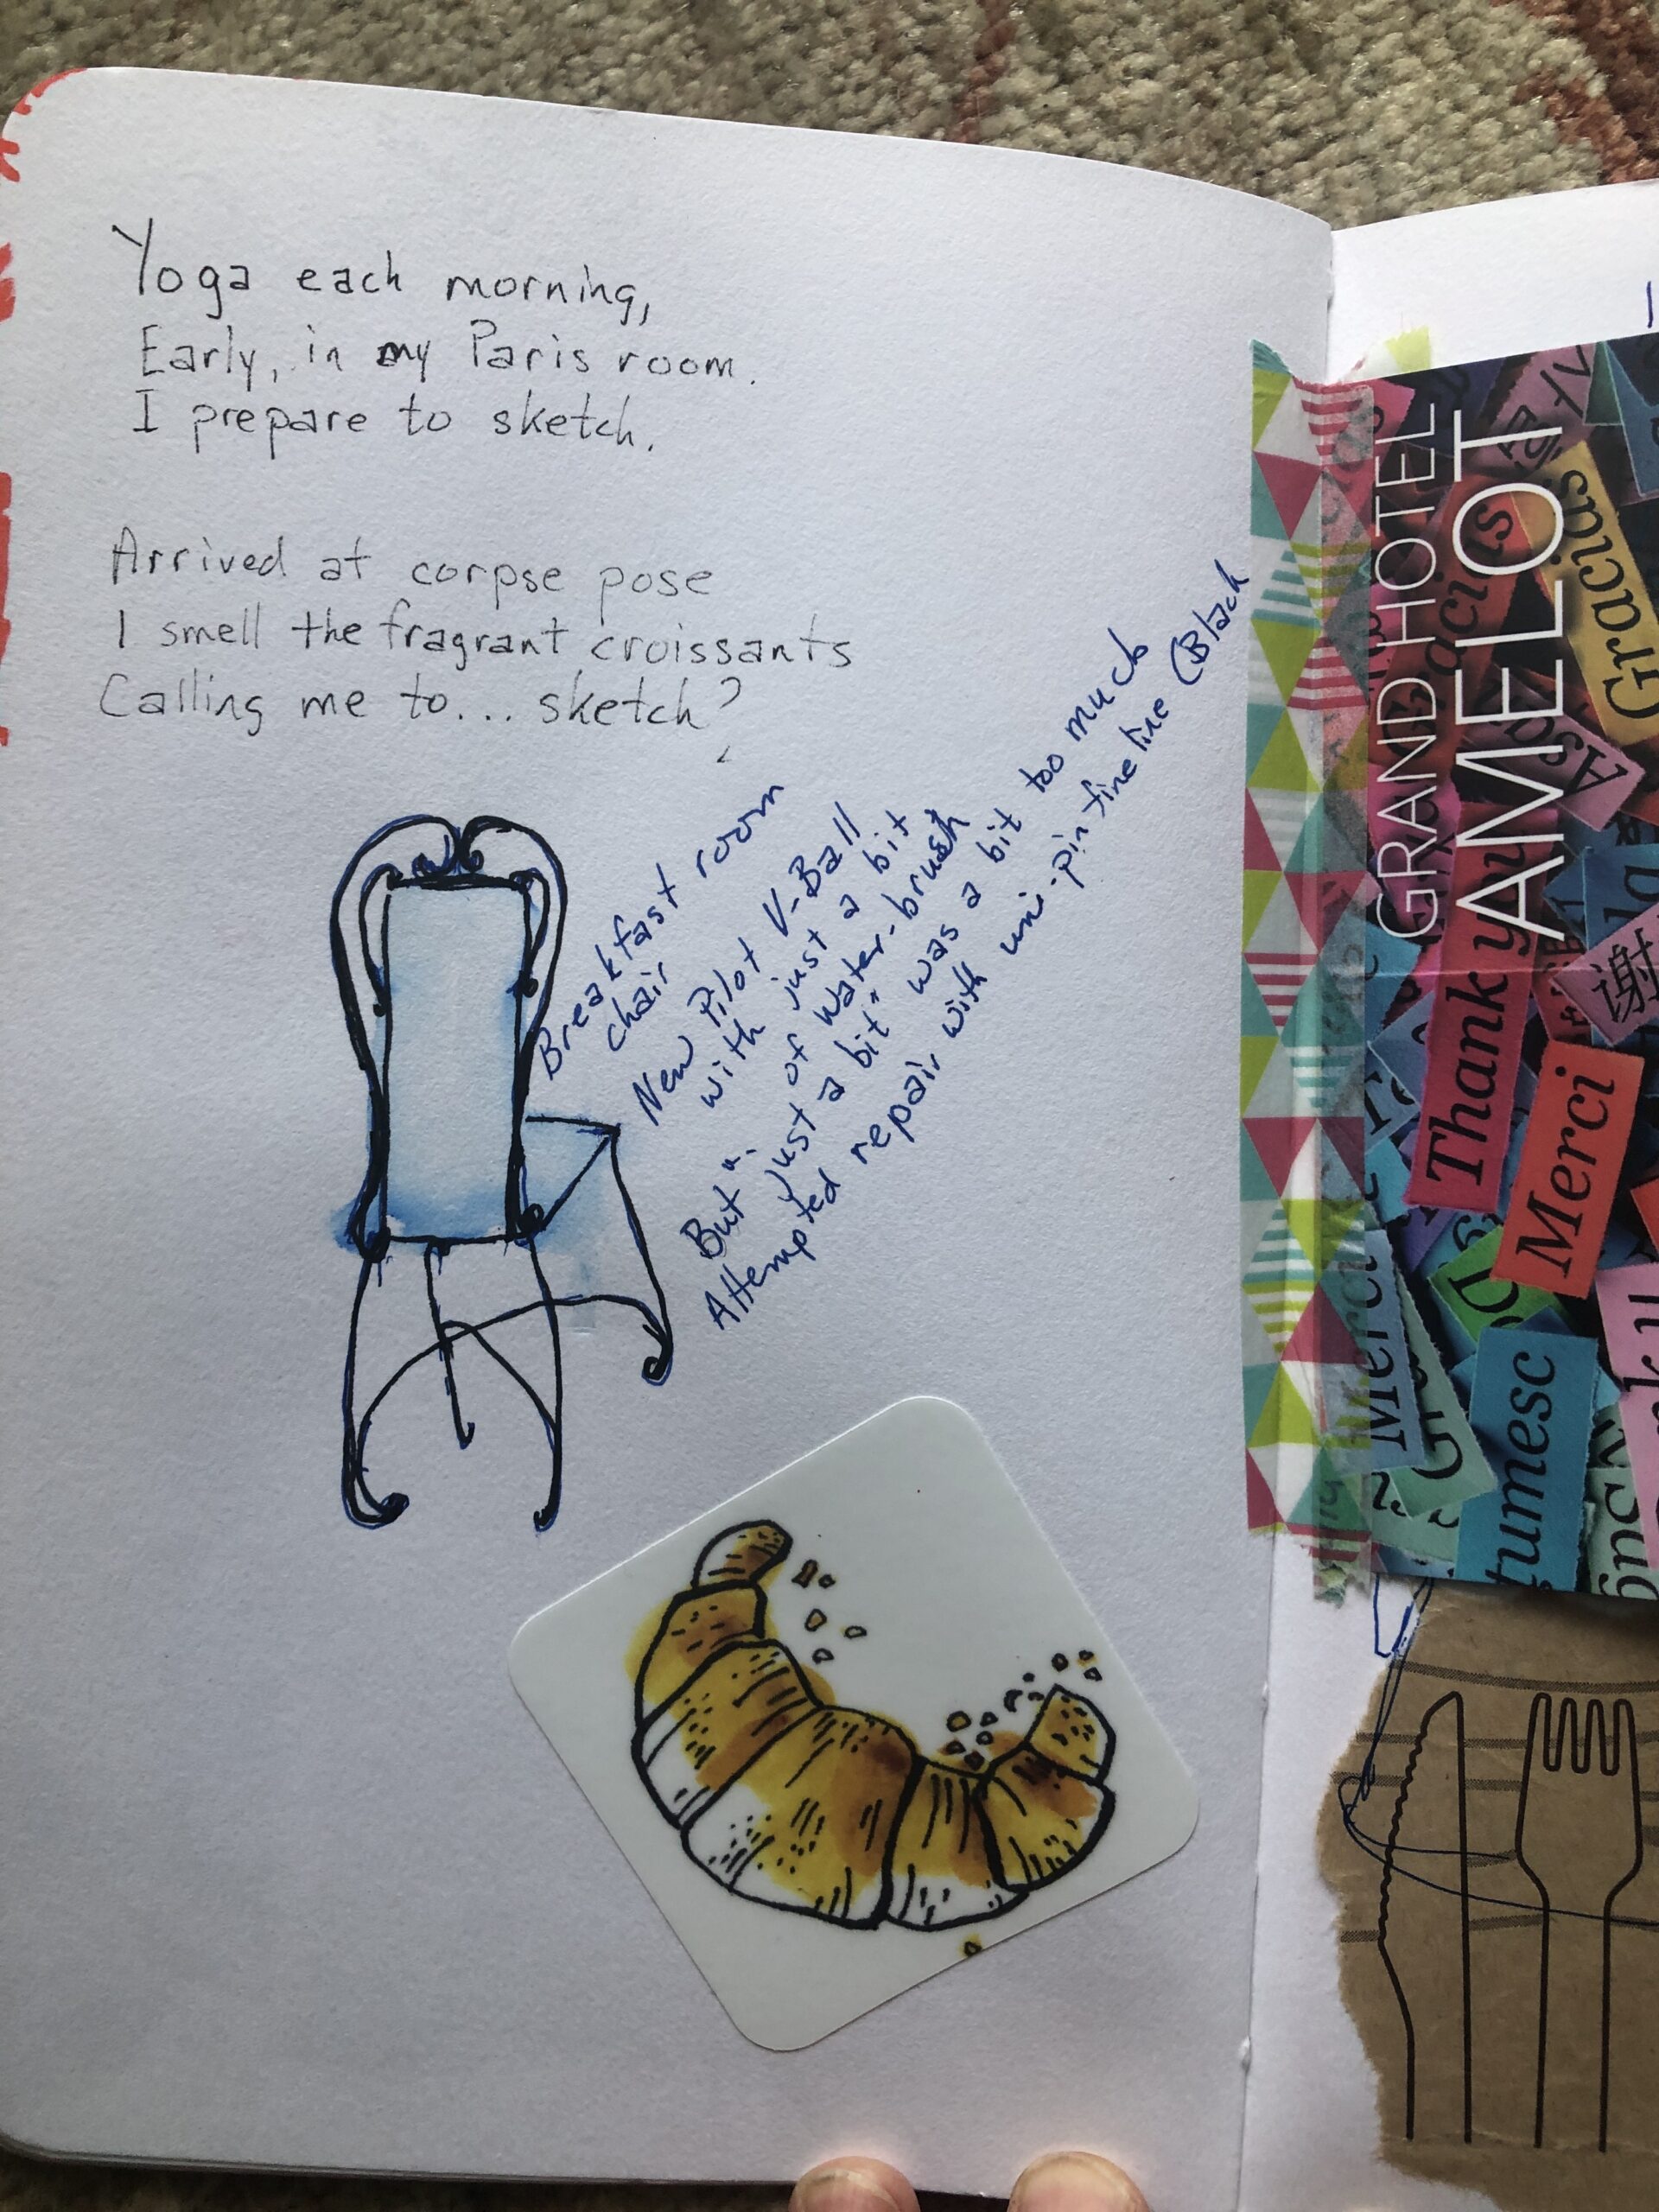 Yoga each morning,
Early, in my Paris room.
I prepare to sketch.
Arrived at corpse pose
I smell the fragrant croissants
Calling me to... sketch?
Breakfast room
chair
New Pilot V-Ball
with just a bit
of water-brush
But "just a bit" was a bit too much
Attempted repair with uni-pin fine line (Black
GRAND HOTEL
AMELOT
Gracias
Thank you
Merci
谢
Merci
tumesc